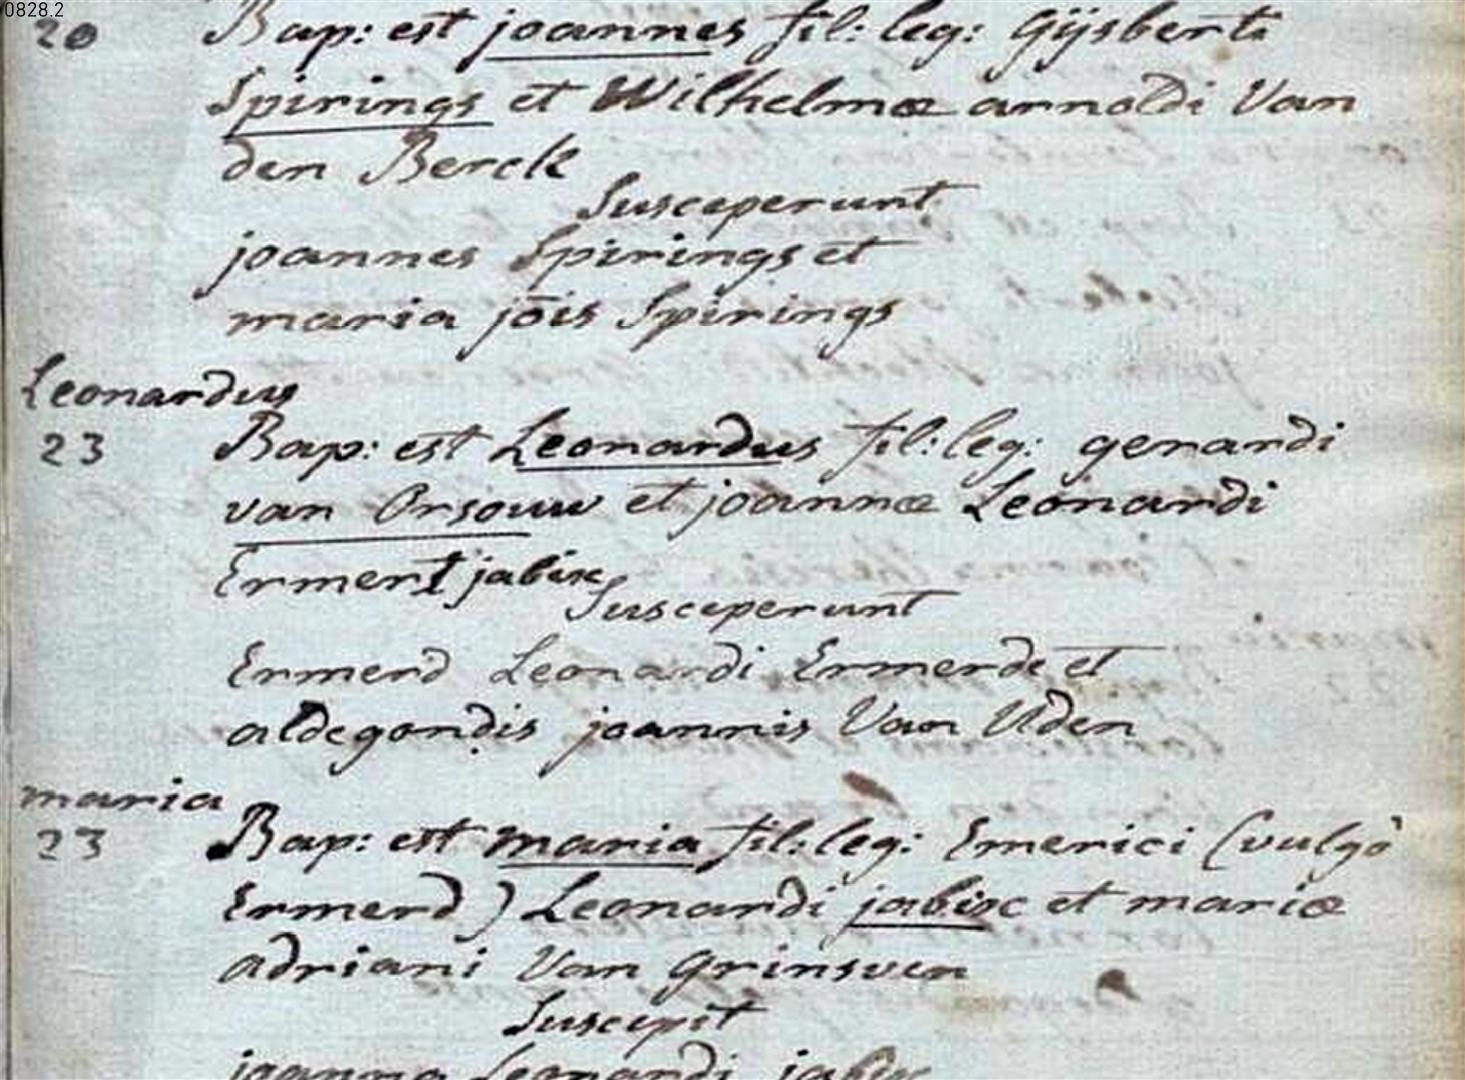 0828.2
20 Bap: est joannes fil: leg: Gijsberti
Spirings et Wilhelmæ arnoldi Van
den Berck
Susceperunt
joannes Spirings et
maria jōis Spirings
Leonardus
23 Bap: est Leonardus fil: leg: gerardi
van Orsouw et joannæ Leonardi
Ermert jabix
Susceperunt
Ermerd Leonardi Ermerde et
aldegondis joannis Van Uden
maria
23 Bap: est maria fil: leg: Emerici (vulgò
Ermerd) Leonardi jabisc et mariæ
adriani Van Grinsven
Suscepit
joanna Leonardi